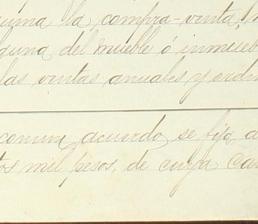 suma la compra-venta,
guna del mueble ó inmueb
las ventas anuales y ordin
comun acuerdo se fijo a
tos mil pesos, de cuya can